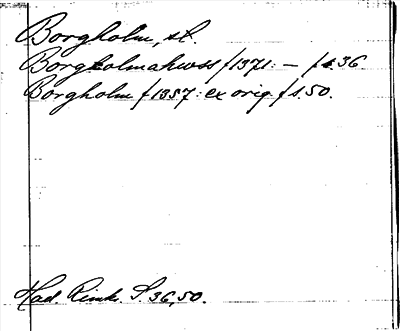 Borgholm, sl.
Borgholmahuss /1371: – /s. 36.
Borgholm /1357: ex orig /s. 50.
Had. Rimkr. S. 36, 50.